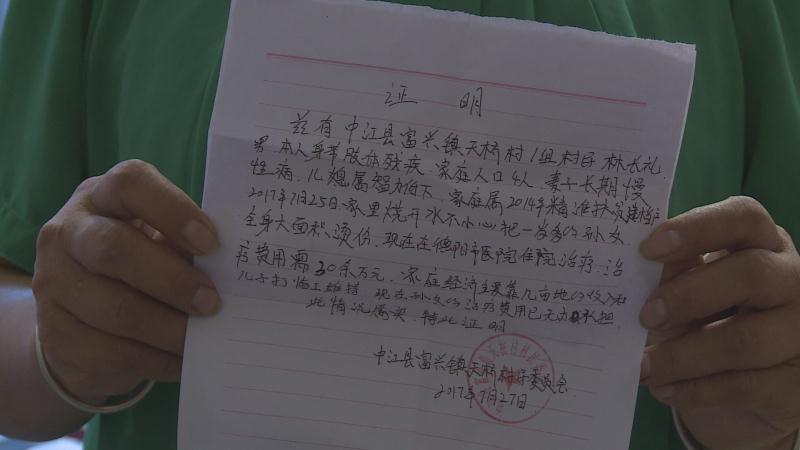 证 明
兹有中江县富兴镇天桥村1组村民林长礼,
男.本人身带肢体残疾.家庭人口4人,妻子长期慢
性病.儿媳属智力低下.家庭属2014年精准扶贫建档户
2017年7月25日家里烧开水不小心把一岁多的孙女
全身大面积烫伤.现在在德阳市医院住院治疗.治
疗费用需30余万元.家庭经济主要靠几亩地的收入和
儿子打临工维持 现在孙女的治疗费用已无力承担.
此情况属实.特此证明
中江县富兴镇天桥村村委员会
2017年7月27日